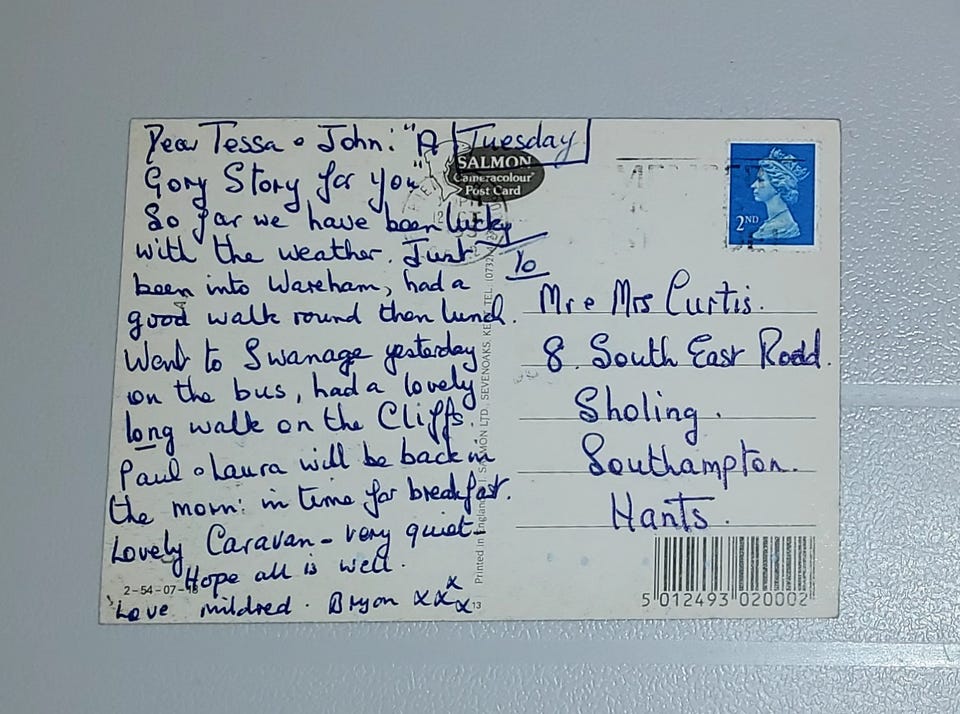 Dear Tessa & John: "A Tuesday
Gory Story for you"
So far we have been lucky
with the weather. Just
been into Wareham, had a
good walk round then lunch.
Went to Swanage yesterday
on the bus, had a lovely
long walk on the Cliffs.
Paul & Laura will be back in
the morn: in time for breakfast.
Lovely Caravan - very quiet -
Hope all is well.
Love mildred. Bryon xxxx
2-54-07-
13
SALMON
Cameracolour
Post Card
Printed in England J. SALMON LTD., SEVENOAKS, KENT. TEL. (0732)
2ND
To
Mr & Mrs Curtis.
8. South East Road.
Sholing.
Southampton.
Hants.
5 012493 020002